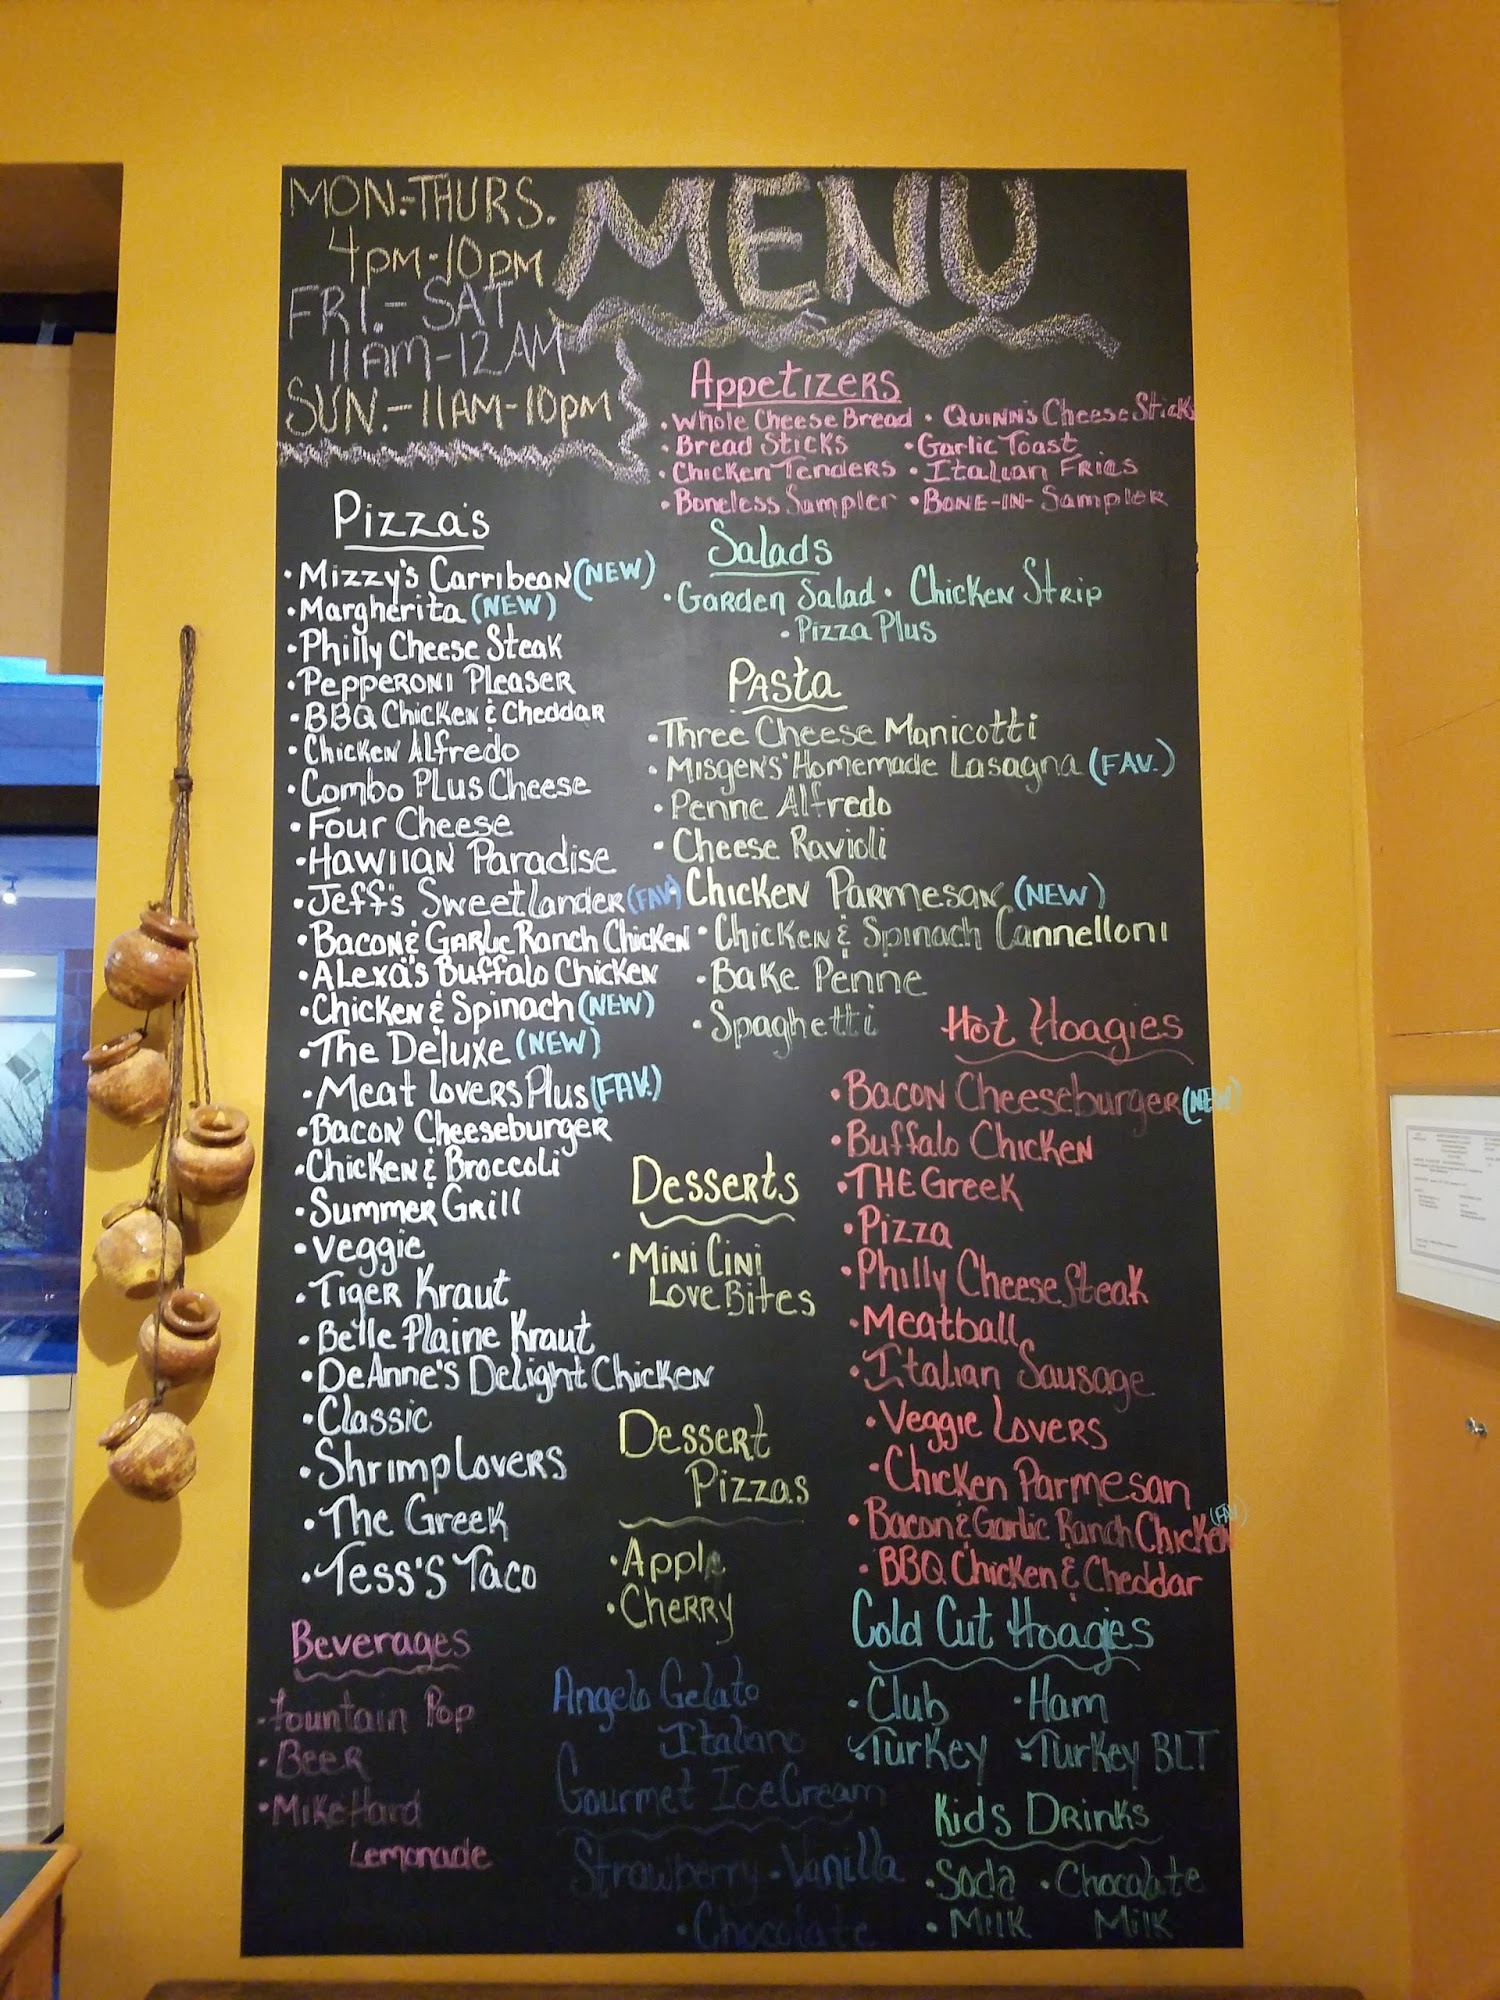 MENU
MON.-THURS.
4PM-10PM
FRI.- SAT
11AM-12AM
SUN.-11AM-10PM
Appetizers
• Whole Cheese Bread • Quinn's Cheese Sticks
• Bread Sticks • Garlic Toast
• Chicken Tenders • Italian Fries
• Boneless Sampler • Bone-in-Sampler
Salads
• Garden Salad • Chicken Strip
• Pizza Plus
Pizza's
• Mizzy's Carribean (NEW)
• Margherita (NEW)
• Philly Cheese Steak
• Pepperoni Pleaser
• BBQ Chicken & Cheddar
• Chicken Alfredo
• Combo Plus Cheese
• Four Cheese
• Hawiian Paradise
• Jeff's Sweetlander (FAV)
• Bacon & Garlic Ranch Chicken
• Alexa's Buffalo Chicken
• Chicken & Spinach (NEW)
• The Deluxe (NEW)
• Meat Lovers Plus (FAV.)
• Bacon Cheeseburger
• Chicken & Broccoli
• Summer Grill
• Veggie
• Tiger Kraut
• Belle Plaine Kraut
• DeAnne's Delight Chicken
• Classic
• Shrimp Lovers
• The Greek
• Tess's Taco
Pasta
• Three Cheese Manicotti
• Misgens' Homemade Lasagna (FAV.)
• Penne Alfredo
• Cheese Ravioli
• Chicken Parmesan (NEW)
• Chicken & Spinach Cannelloni
• Bake Penne
• Spaghetti
Hot Hoagies
• Bacon Cheeseburger (NEW)
• Buffalo Chicken
• THE Greek
• Pizza
• Philly Cheese Steak
• Meatball
• Italian Sausage
• Veggie Lovers
• Chicken Parmesan
• Bacon & Garlic Ranch Chicken (FAV)
• BBQ Chicken & Cheddar
Desserts
• Mini Cini
Love Bites
Dessert
Pizzas
• Apple
• Cherry
Cold Cut Hoagies
• Club • Ham
• Turkey • Turkey BLT
Beverages
• Fountain Pop
• Beer
• Mike Hard
Lemonade
Angelo Gelato
Italiano
Gourmet Ice Cream
Strawberry • Vanilla
• Chocolate
Kids Drinks
• Soda • Chocolate
• Milk Milk